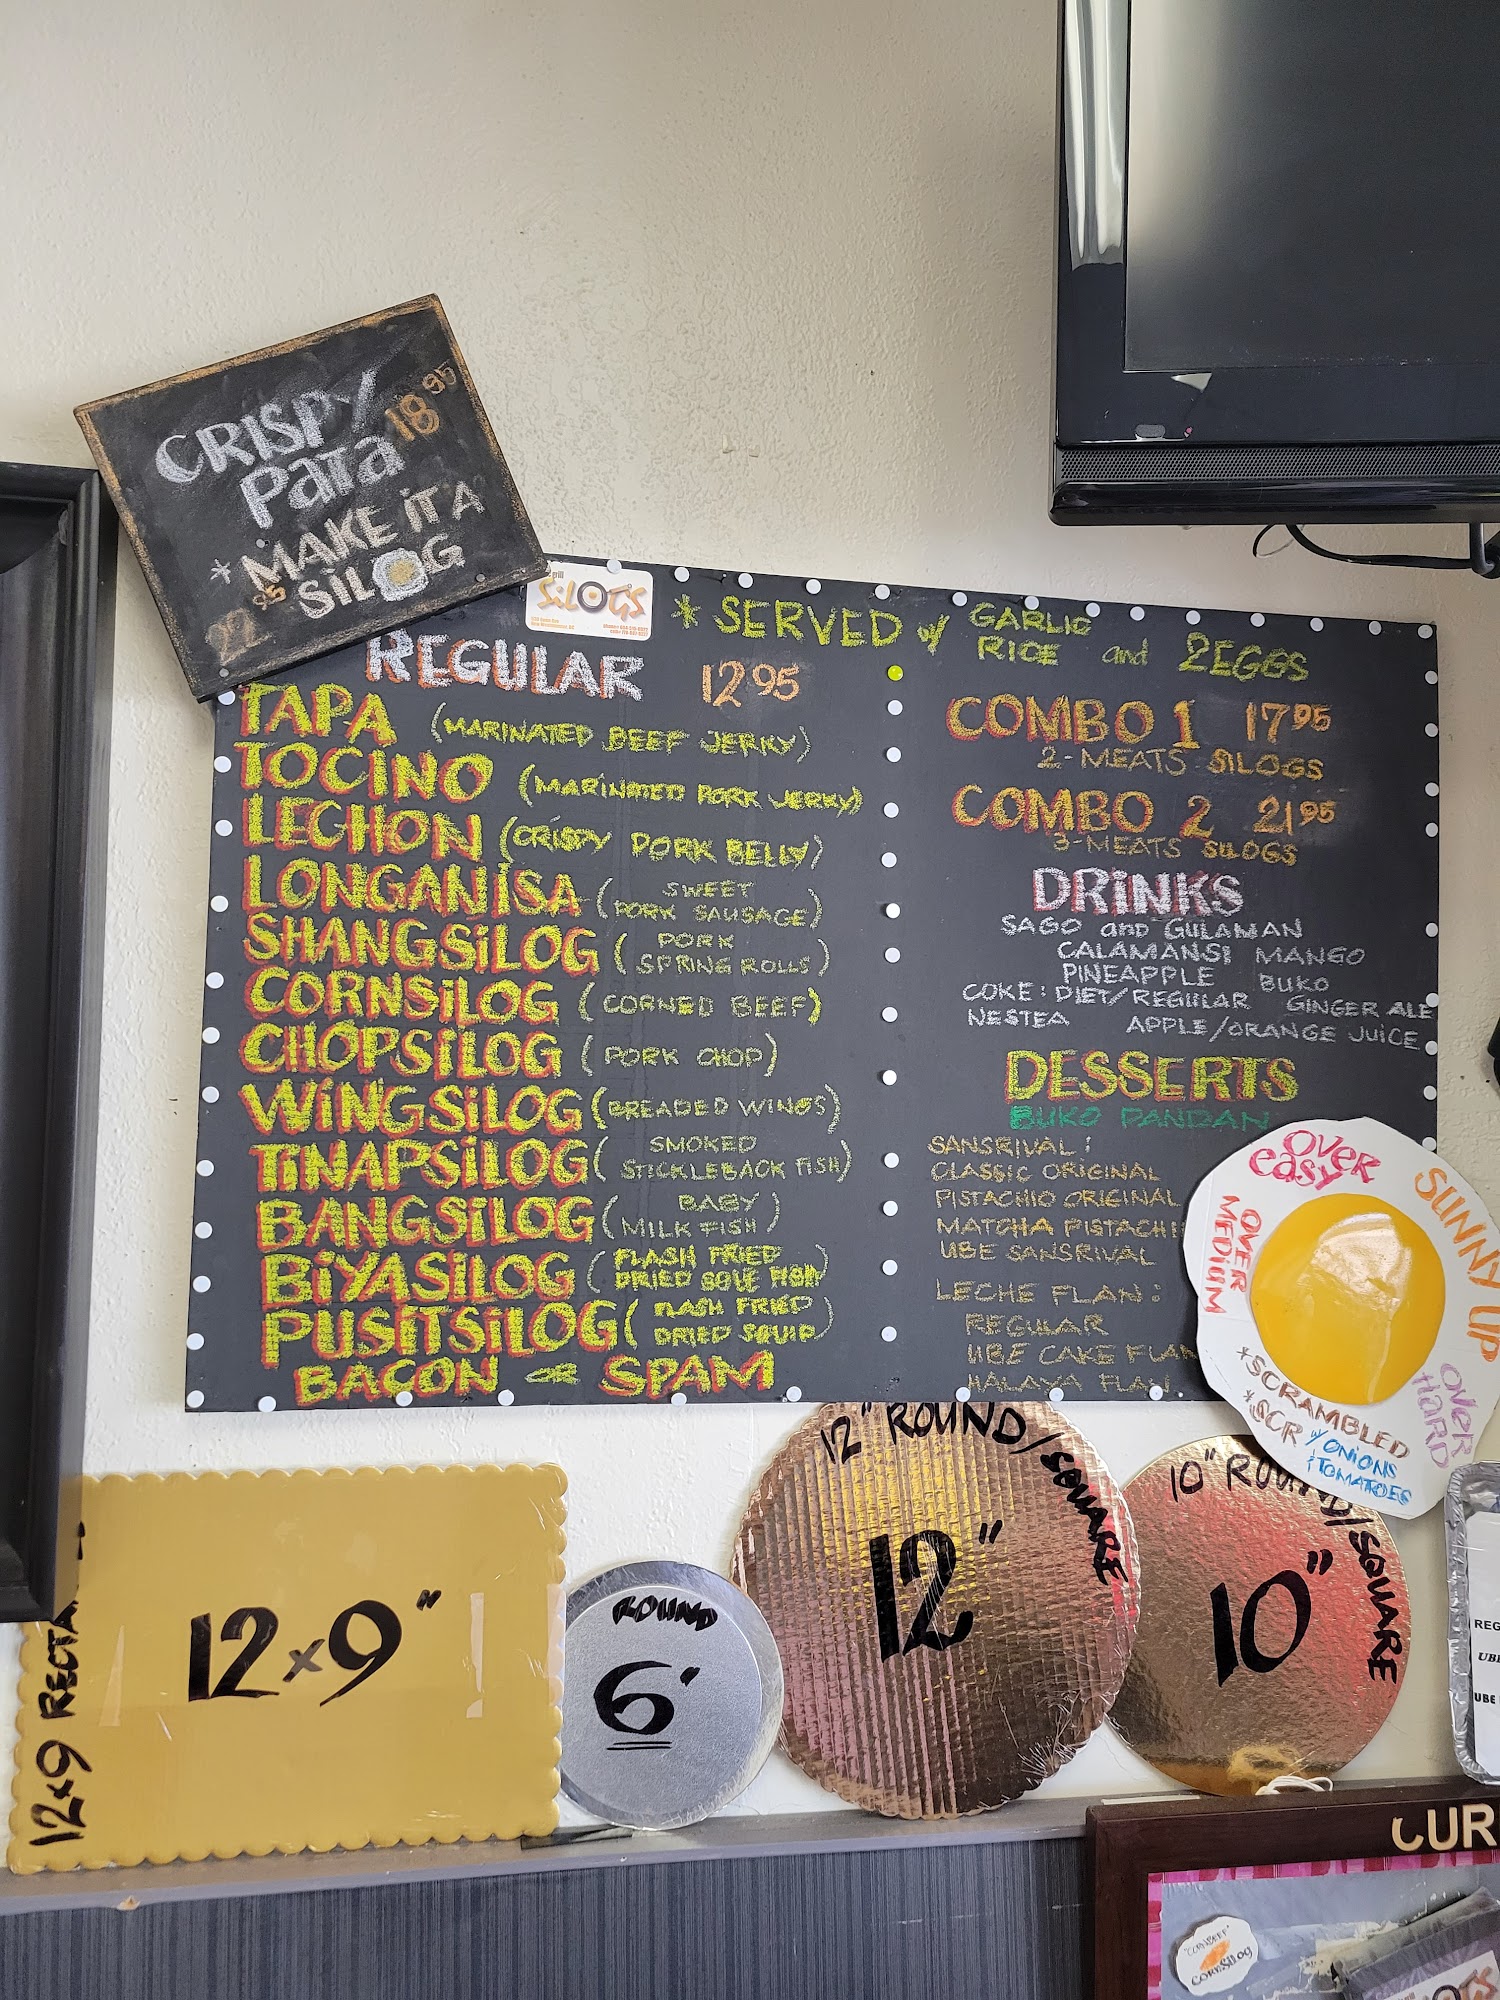 CRISPY
Pata 18 95
* MAKE iT A
22 95 SiLOG
grill
SiLOGS
* SERVED w/ GARLIC
RICE and 2 EGGS
REGULAR 12 95
TAPA (MARINATED BEEF JERKY)
TOCINO (MARINATED PORK JERKY)
LECHON (CRISPY PORK BELLY)
LONGANISA (SWEET
PORK SAUSAGE)
SHANGSiLOG (PORK
SPRING ROLLS)
CORNSiLOG (CORNED BEEF)
CHOPSiLOG (PORK CHOP)
WiNGSiLOG (BREADED WINGS)
TiNAPSiLOG (SMOKED
STICKLEBACK FISH)
BANGSiLOG (BABY
MILK FISH)
BiYASiLOG (FLASH FRIED
DRIED SOLE FISH)
PUSiTSiLOG (FLASH FRIED
DRIED SQUID)
BACON or SPAM
COMBO 1 17 95
2-MEATS SiLOGS
COMBO 2 21 95
3-MEATS SiLOGS
DRiNKS
SAGO and GULAMAN
CALAMANSI MANGO
PINEAPPLE BUKO
COKE: DIET/REGULAR GINGER ALE
NESTEA APPLE/ORANGE JUICE
DESSERTS
BUKO PANDAN
SANSRIVAL:
CLASSIC ORIGINAL
PISTACHIO ORIGINAL
MATCHA PISTACHI
UBE SANSRIVAL
LECHE FLAN:
REGULAR
UBE CAKE FLAN
HALAYA FLAN
OVER
easy
SUNNY UP
OVER
MEDiUM
OVER
HARD
*SCRAMBLED
*SCR w/ ONIONS
TOMATOES
12x9 RECTA
12x9"
ROUND
6"
12" ROUND/SQUARE
12"
10" ROUND/SQUARE
10"
REG
UBE
UBE
CUR
"CORNBEEF"
CORNSiLOG